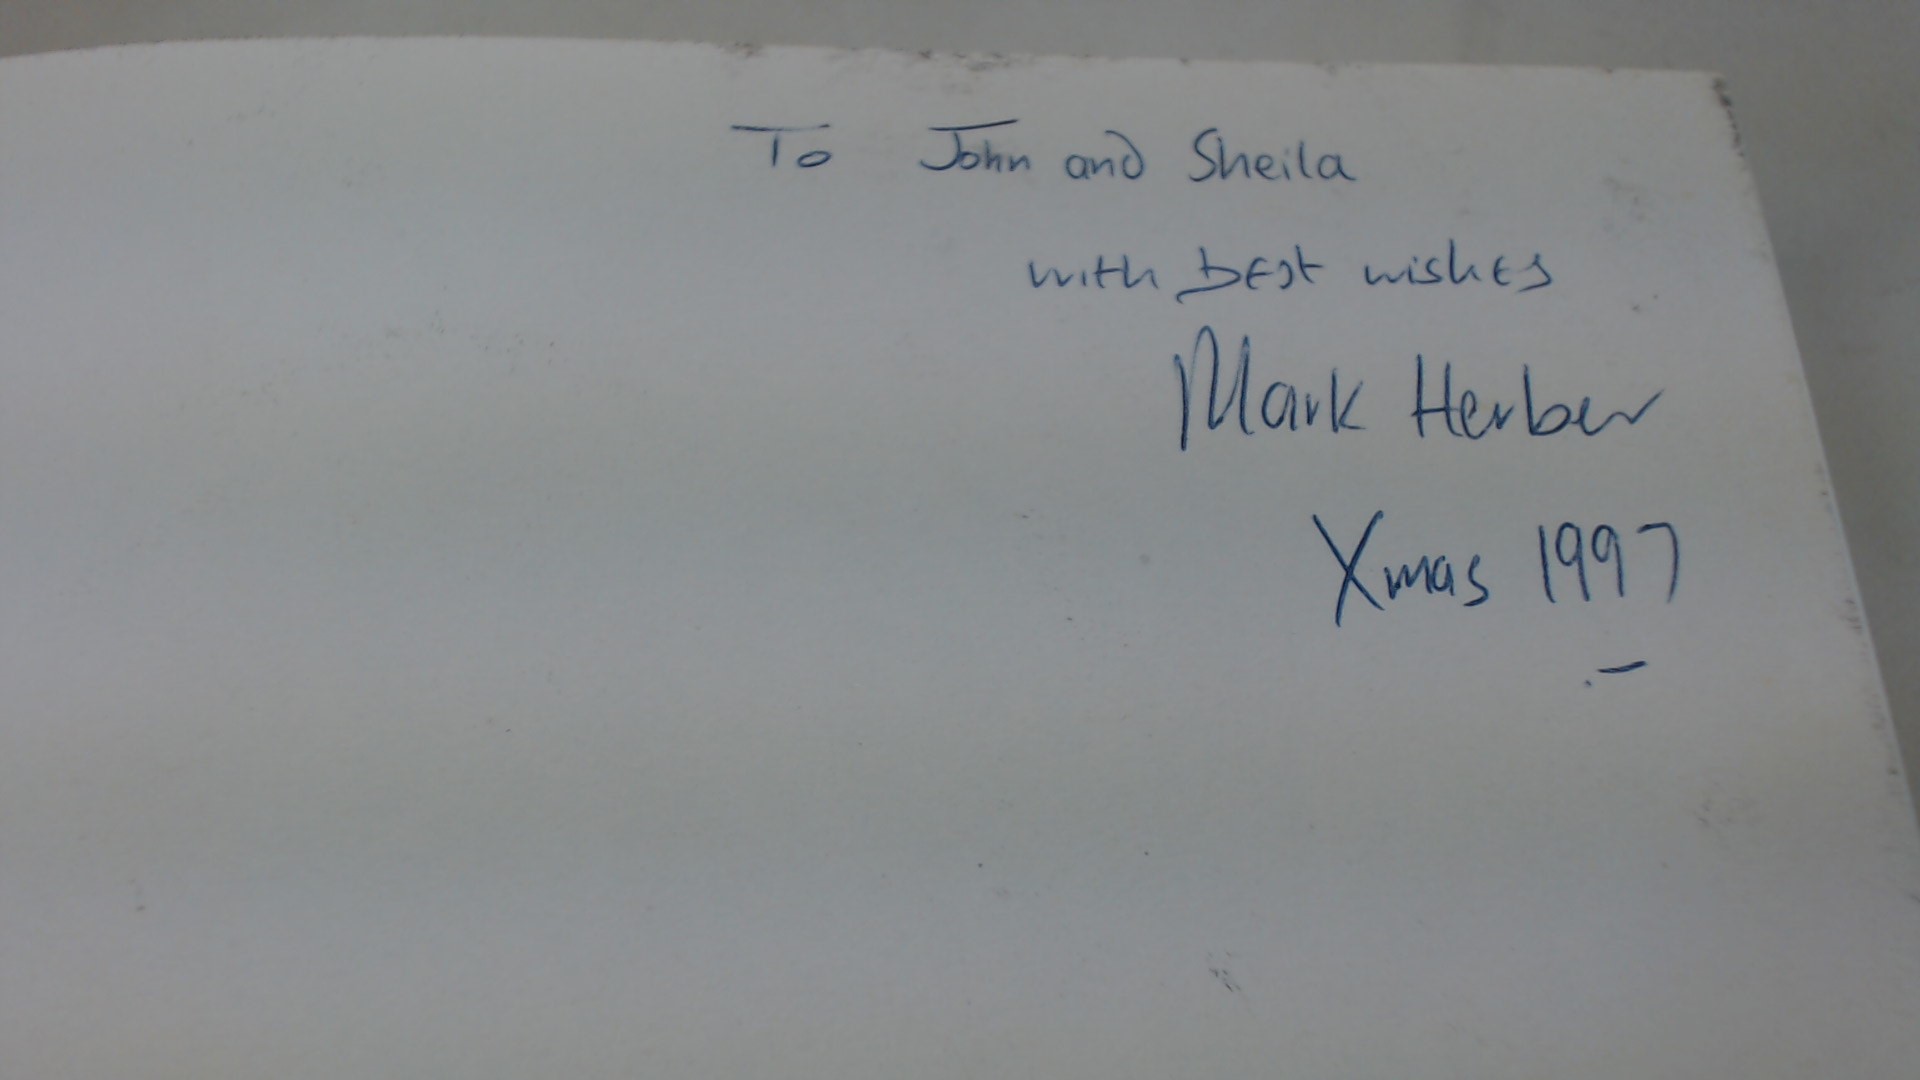 To John and Sheila
with best wishes
Mark Herber
Xmas 1997